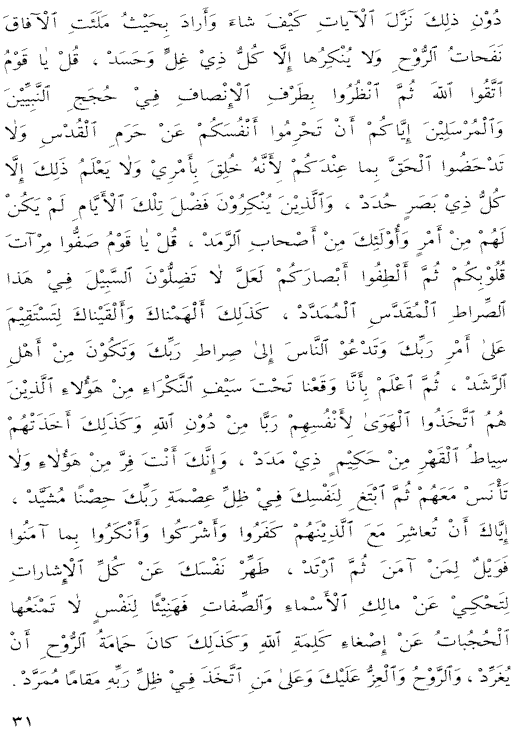 دُوْنِ ذلِكَ نَزَّلَ ٱلْآياتِ كَيْفَ شاءَ وَأَرادَ بِحَيْثُ مَلَئَتِ ٱلْآفاقَ
نَفَحاتُ ٱلرُّوْحِ وَلا يُنْكِرُها إِلَّا كُلُّ ذِيْ غِلٍّ وَحَسَدْ ، قُلْ يا قَوْمُ
ٱتَّقُوا ٱللهَ ثُمَّ ٱنْظُرُوا بِطَرْفِ ٱلْإِنْصافِ فِيْ حُجَجِ ٱلنَّبِيِّيْنَ
وَٱلْمُرْسَلِيْنَ إِيَّاكُمْ أَنْ تَحْرِمُوا أَنْفُسَكُمْ عَنْ حَرَمِ ٱلْقُدْسِ وَلا
تَدْحَضُوا ٱلْحَقَّ بِما عِنْدَكُمْ لِأَنَّهُ خُلِقَ بِأَمْرِيْ وَلا يَعْلَمُ ذَلِكَ إِلَّا
كُلُّ ذِيْ بَصَرٍ حُدَدْ ، وَٱلَّذِيْنَ يُنْكِرُوْنَ فَضْلَ تِلْكَ ٱلْأَيَّامِ لَمْ يَكُنْ
لَهُمْ مِنْ أَمْرٍ وَأُوْلَئِكَ مِنْ أَصْحابِ ٱلرَّمَدْ ، قُلْ يا قَوْمُ صَفُّوا مِرْآتَ
قُلُوْبِكُمْ ثُمَّ أَلْطِفُوا أَبْصارَكُمْ لَعَلَّ لا تَضِلُّوْنَ ٱلسَّبِيْلَ فِيْ هَذا
ٱلصِّراطِ ٱلْمُقَدَّسِ ٱلْمُمَدَّدْ ، كَذَلِكَ أَلْهَمْناكَ وَأَلْقَيْناكَ لِتَسْتَقِيْمَ
عَلىٰ أَمْرِ رَبِّكَ وَتَدْعُوَ ٱلنَّاسَ إِلىٰ صِراطِ رَبِّكَ وَتَكُوْنَ مِنْ أَهْلِ
ٱلرَّشَدْ ، ثُمَّ ٱعْلَمْ بِأَنَّا وَقَعْنا تَحْتَ سَيْفِ ٱلنَّكْراءِ مِنْ هَؤُلاءِ ٱلَّذِيْنَ
هُمُ ٱتَّخَذُوا ٱلْهَوَىٰ لِأَنْفُسِهِمْ رَبًّا مِنْ دُوْنِ ٱللهِ وَكَذَلِكَ أَخَذَتْهُمْ
سِياطُ ٱلْقَهْرِ مِنْ حَكِيْمٍ ذِيْ مَدَدْ ، وَإِنَّكَ أَنْتَ فِرَّ مِنْ هَؤُلاءِ وَلا
تَأْنَسْ مَعَهُمْ ثُمَّ ٱبْتَغِ لِنَفْسِكَ فِيْ ظِلِّ عِصْمَةِ رَبِّكَ حِصْنًا مُشَيَّدْ ،
إِيَّاكَ أَنْ تُعاشِرَ مَعَ ٱلَّذِيْنَهُمْ كَفَرُوا وَأَشْرَكُوا وَأَنْكَرُوا بِما آمَنُوا
فَوَيْلٌ لِمَنْ آمَنَ ثُمَّ ٱرْتَدْ ، طَهِّرْ نَفْسَكَ عَنْ كُلِّ ٱلْإِشاراتِ
لِتَحْكِيْ عَنْ مالِكِ ٱلْأَسْماءِ وَٱلصِّفاتِ فَهَنِيْئًا لِنَفْسٍ لا تَمْنَعُها
ٱلْحُجُباتُ عَنْ إِصْغاءِ كَلِمَةِ ٱللهِ وَكَذَلِكَ كانَ حَمامَةُ ٱلرُّوْحِ أَنْ
يُغَرِّدْ ، وَٱلرَّوْحُ وَٱلْعِزُّ عَلَيْكَ وَعَلىٰ مَنِ ٱتَّخَذَ فِيْ ظِلِّ رَبِّهِ مَقامًا مُمَرَّدْ .
٣١